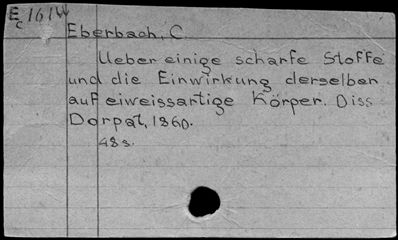 E 1614
c
Eberbach, C.
Ueber einige scharfe Stoffe
und die Einwirkung derselben
auf eiweissartige Körper. Diss
Dorpat, 1860.
48s.